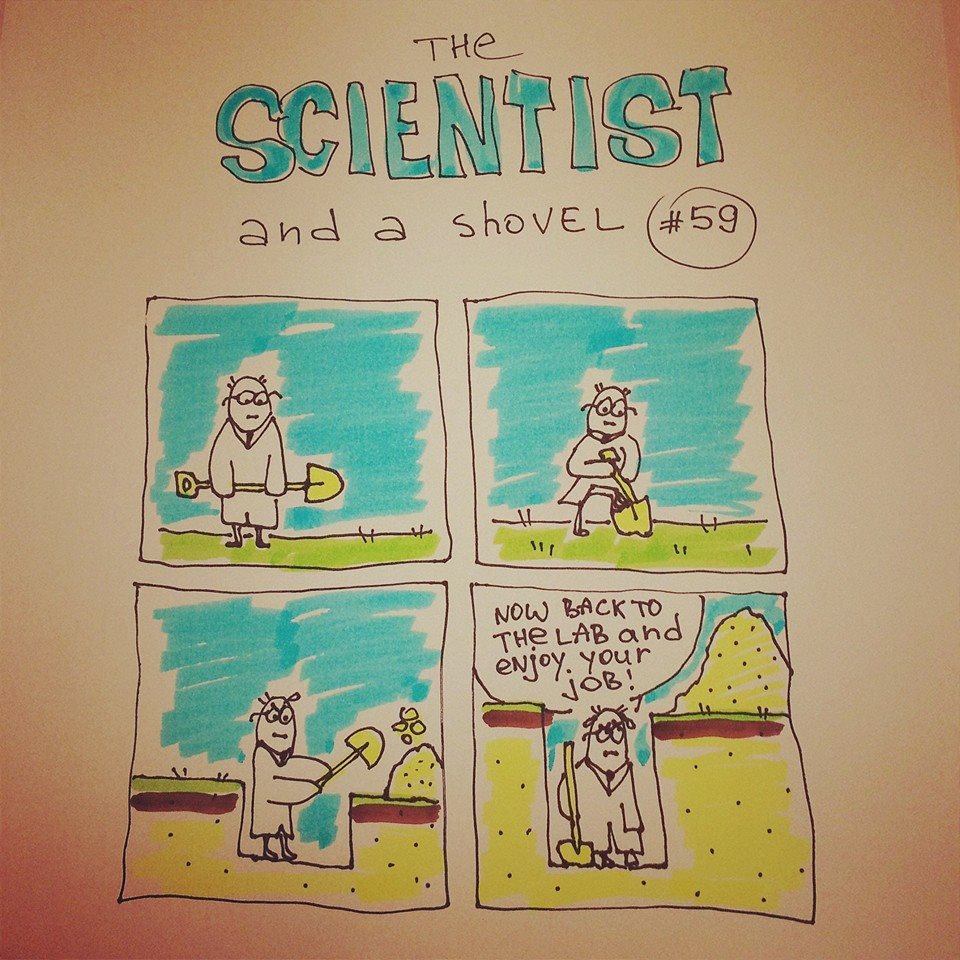 THe
SCIENTIST
and a shoVEL #59
NOW BACK TO
THe LAB and
enjoy your
joB!